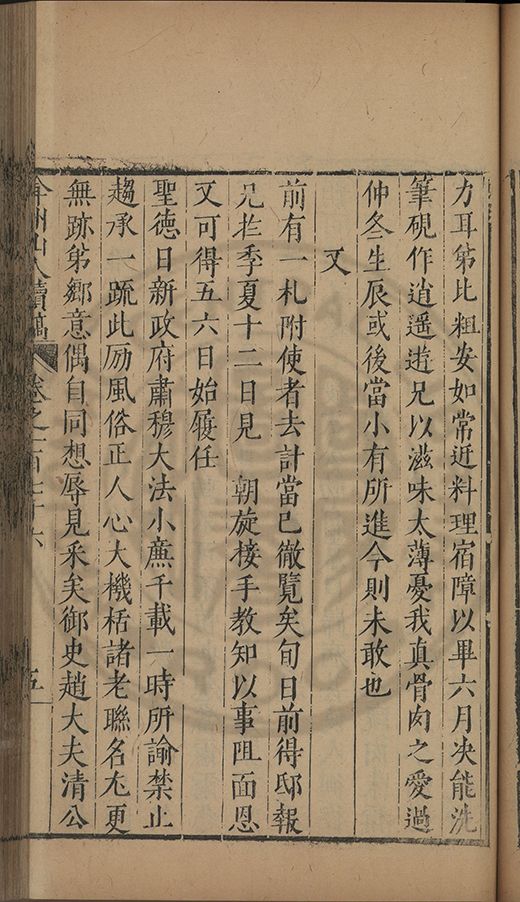 力耳第比粗安如常近料理宿障以畢六月决能洗
筆硯作逍遥遊兄以滋味太薄憂我真骨肉之愛過
仲冬生辰或後當小有所進今則未敢也
又
前有一札附使者去計當已徹覽矣旬日前得邸報
兄於季夏十二日見 朝旋接手教知以事阻面恩
又可得五六日始履任
聖德日新政府肅穆大法小廉千載一時所諭禁止
趨承一䟽此厉風俗正人心大機栝諸老聯名尤更
無跡第鄉意偶自同想辱見采矣御史趙大夫清公
弇州山人續稿 卷之一百七十六 五